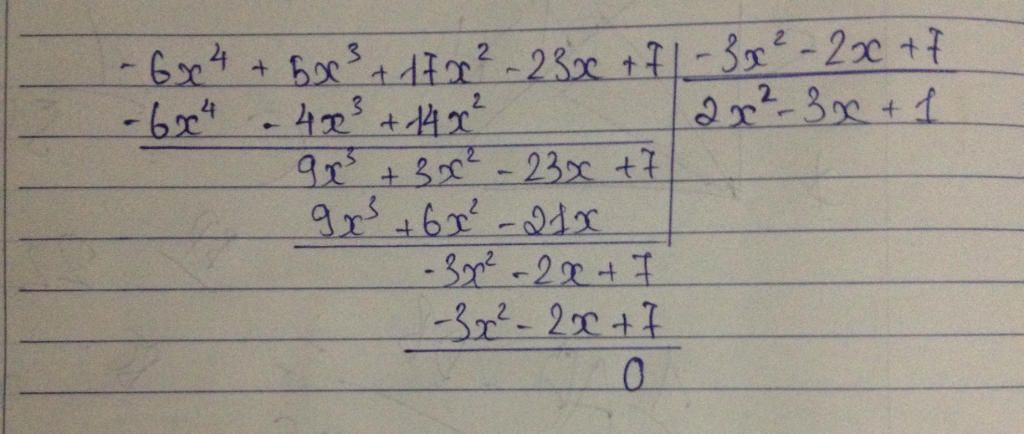 -6x⁴ + 5x³ + 17x² - 23x + 7 | -3x² - 2x + 7
-6x⁴ - 4x³ + 14x² | 2x² - 3x + 1
9x³ + 3x² - 23x + 7
9x³ + 6x² - 21x
-3x² - 2x + 7
-3x² - 2x + 7
0